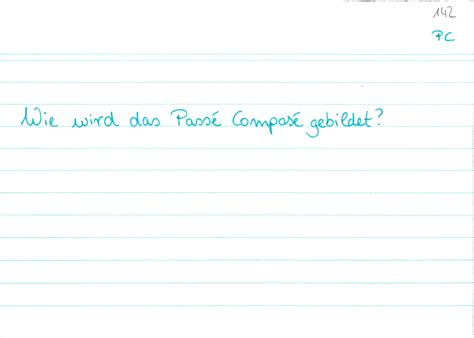 142
PC
Wie wird das Passé Composé gebildet?